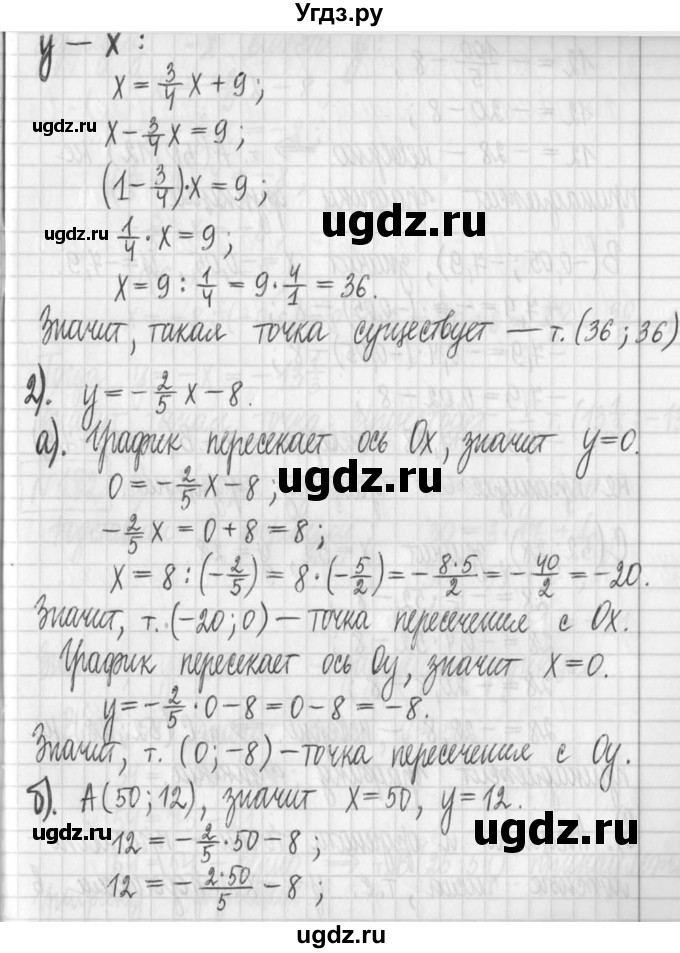 Угдз.ру
y – x :
x = 3/4 x + 9 ;
ugdz.ru x – 3/4 x = 9 ;
(1 – 3/4)·x = 9 ;
ugdz.ru 1/4 · x = 9 ; ugdz.ru
x = 9 : 1/4 = 9 · 4/1 = 36.
Значит, такая точка существует – т. (36 ; 36)
2). y = – 2/5 x – 8.
а). График пересекает ось Ox, значит y=0.
0 = – 2/5 x – 8 ; ugdz.ru
– 2/5 x = 0 + 8 = 8 ;
x = 8 : (– 2/5) = 8 · (– 5/2) = – 8·5/2 = – 40/2 = –20.
Значит, т. (–20 ; 0) – точка пересечения с Ox.
График пересекает ось Oy, значит x=0.
y = – 2/5 · 0 – 8 = 0 – 8 = –8.
Значит, т. (0 ; –8) – точка пересечения с Oy.
б). A (50 ; 12), значит x=50, y=12.
12 = – 2/5 · 50 – 8 ; ugdz.ru
12 = – 2·50/5 – 8 ;
ugdz.ru